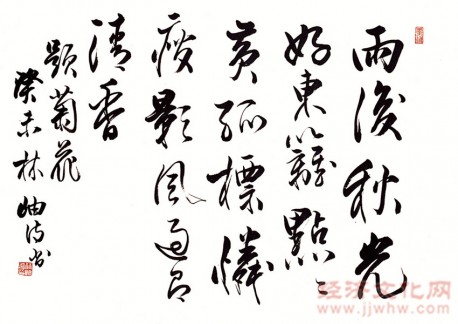 雨後秋光
好東籬點〻
黄孤標憐
瘦影風過
清香
題菊花
癸未林岫詩書
经济文化网
www.jjwhw.com